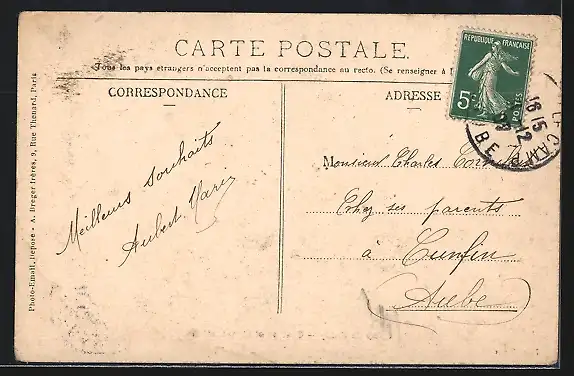 CARTE POSTALE.
Tous les pays étrangers n'acceptent pas la correspondance au recto. (Se renseigner à l
CORRESPONDANCE
ADRESSE
REPUBLIQUE FRANÇAISE
5c
POSTES
18 15
12
CAM
BE
Meilleurs souhaits
Aubert Marie
Monsieur Charles
Chez ses parents
à Cunfin
(Aube)
Photo-Email. Déposé - A. Breger frères, 9, Rue Thenard, Paris